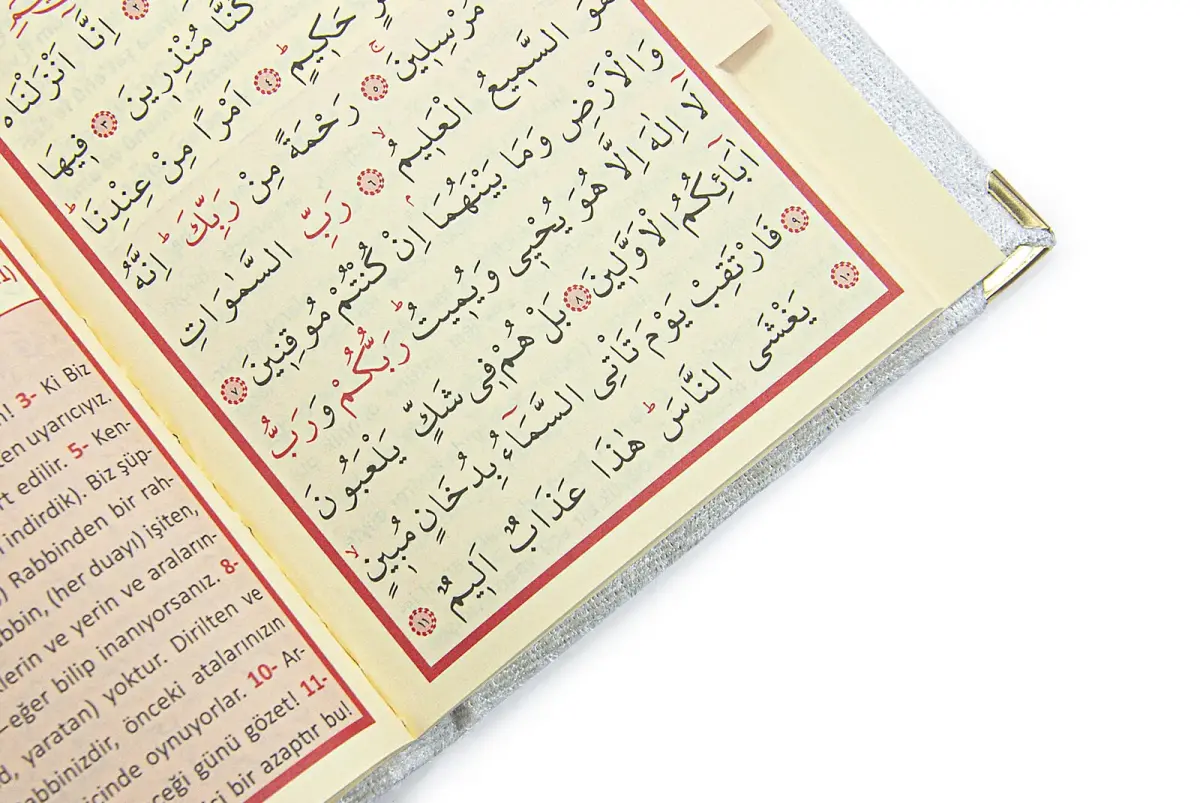 اِنَّٓا اَنْزَلْنَاهُ
كُنَّا مُنْذِرِينَ ﴿٣﴾ فِيهَا
حَكِيمٍ ﴿٤﴾ اَمْرًا مِنْ عِنْدِنَا
مُرْسِلِينَ ﴿٥﴾ رَحْمَةً مِنْ رَبِّكَ اِنَّهُ
هُوَ السَّمِيعُ الْعَلِيمُ ﴿٦﴾ رَبِّ السَّمٰوَاتِ
وَالْاَرْضِ وَمَا بَيْنَهُمَا اِنْ كُنْتُمْ مُوقِنِينَ ﴿٧﴾
لَٓا اِلٰهَ اِلَّا هُوَ يُحْيِى وَيُمِيتُ رَبُّكُمْ وَرَبُّ
اٰبَٓائِكُمُ الْاَوَّلِينَ ﴿٨﴾ بَلْ هُمْ فِى شَكٍّ يَلْعَبُونَ ﴿٩﴾
فَارْتَقِبْ يَوْمَ تَاْتِى السَّمَٓاءُ بِدُخَانٍ مُبِينٍ ﴿١٠﴾
يَغْشَى النَّاسَ هٰذَا عَذَابٌ اَلِيمٌ ﴿١١﴾
3- Ki Biz
uyarıcıyız.
edilir. 5- Ken-
indirdik). Biz şüp-
Rabbinden bir rah-
(her duayı) işiten,
ve yerin ve araların-
eğer bilip inanıyorsanız. 8-
yaratan) yoktur. Dirilten ve
önceki atalarınızın
oynuyorlar. 10- Ar-
günü gözet! 11-
bir azaptır bu!